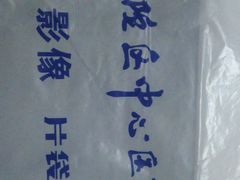 区中心医
影像 片袋